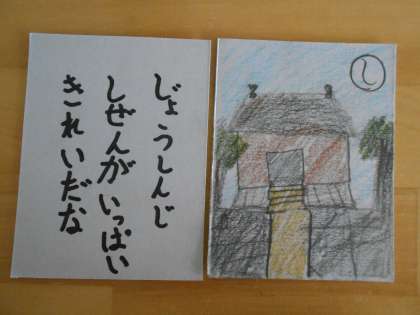 じょうしんじ
しぜんがいっぱい
きれいだな
し